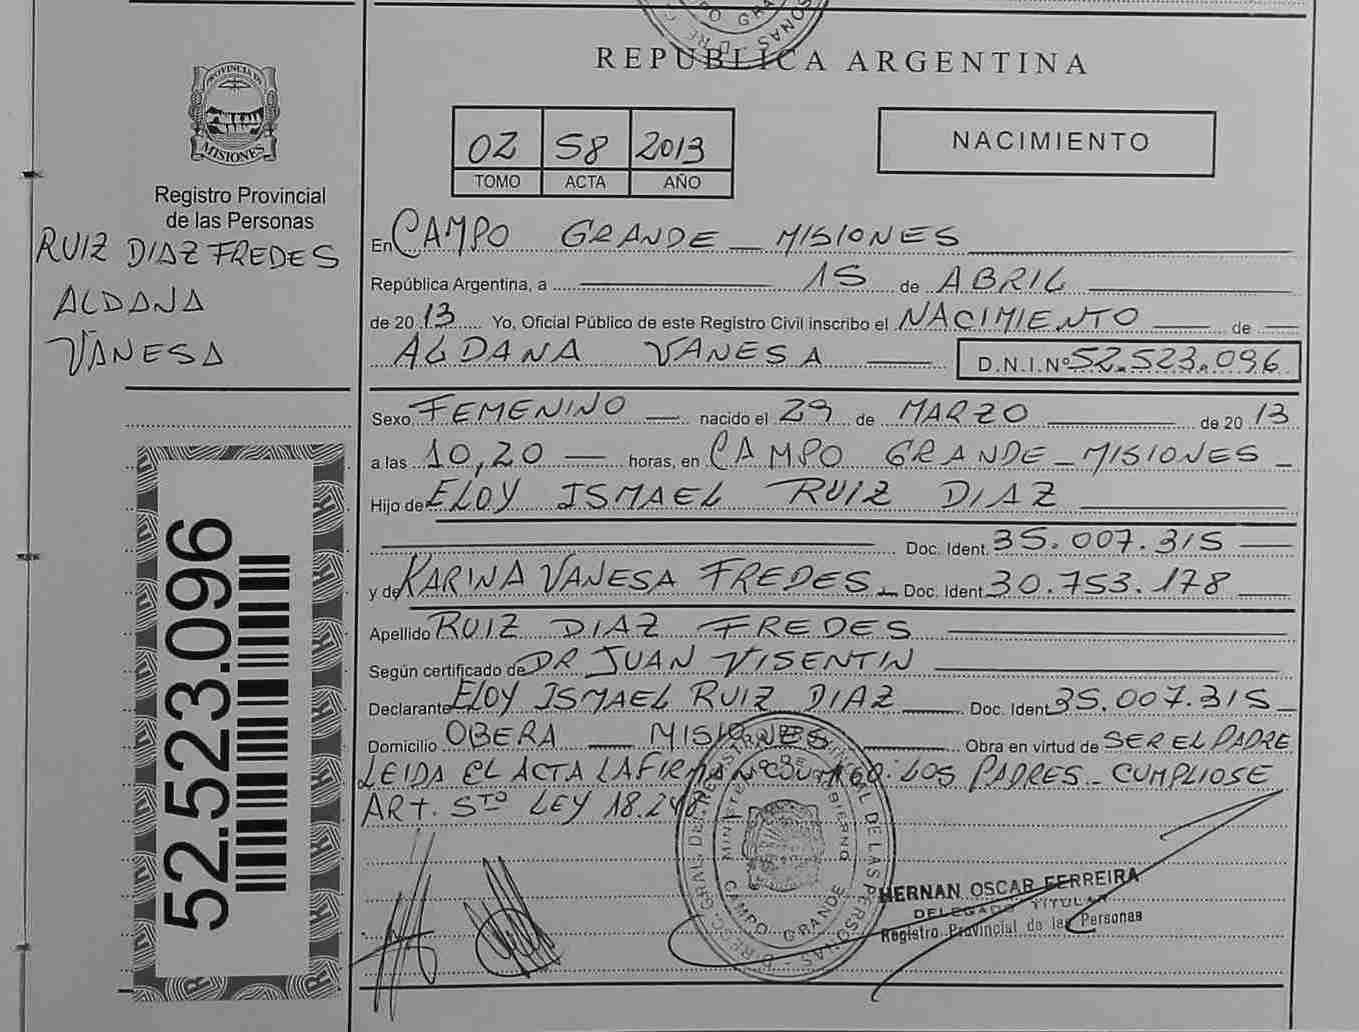 REPUBLICA ARGENTINA
PROVINCIA DE
MISIONES
Registro Provincial
de las Personas
RUIZ DIAZ FREDES
ALDANA
VANESA
52.523.096
02 58 2013
TOMO ACTA AÑO
NACIMIENTO
En CAMPO GRANDE _ MISIONES
República Argentina, a 15 de ABRIL
de 2013 Yo, Oficial Público de este Registro Civil inscribo el NACIMIENTO de
ALDANA VANESA D.N.I.Nº 52.523.096
Sexo FEMENINO nacido el 29 de MARZO de 2013
a las 10,20 horas, en CAMPO GRANDE _ MISIONES _
Hijo de ELOY ISMAEL RUIZ DIAZ
Doc. Ident. 35.007.315
y de KARINA VANESA FREDES _ Doc. Ident 30.753.178
Apellido RUIZ DIAZ FREDES
Según certificado de DR JUAN VISENTIN
Declarante ELOY ISMAEL RUIZ DIAZ Doc. Ident 35.007.315 _
Domicilio OBERA _ MISIONES Obra en virtud de SER EL PADRE
LEIDA EL ACTA LA FIRMAN CONMIGO: LOS PADRES _ CUMPLIOSE
ART. 5TO LEY 18.248
HERNAN OSCAR FERREIRA
DELEGADO TITULAR
Registro Provincial de las Personas
CAMPO GRANDE